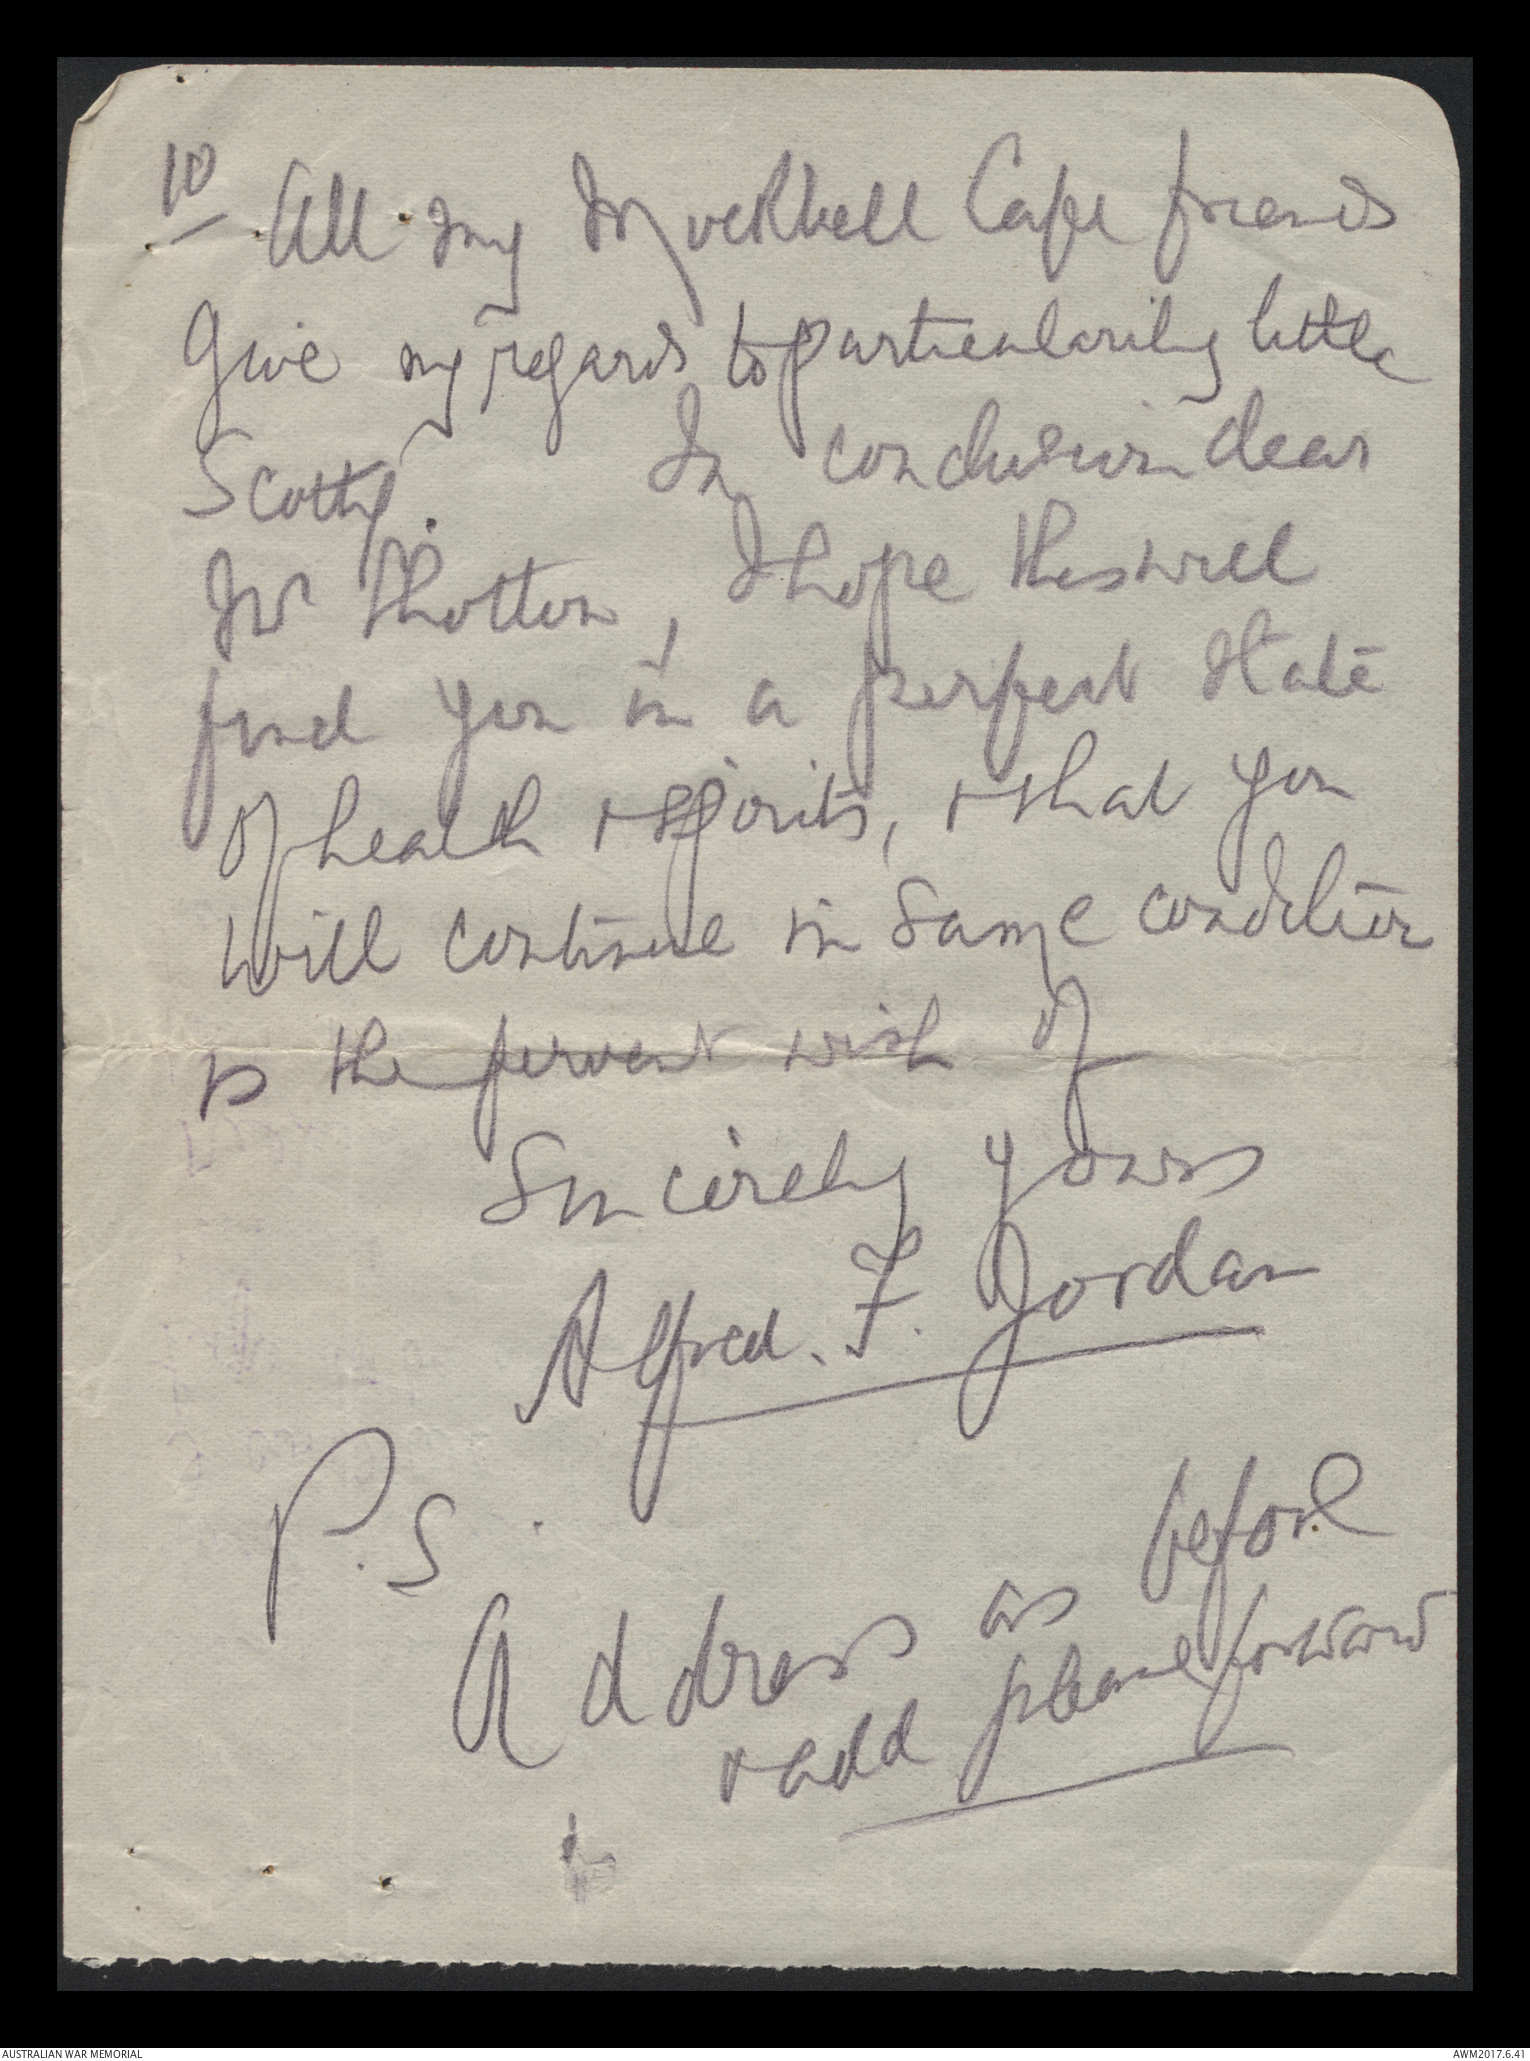 10
All my Mockbell Cafe friends
Give my regards to particularily little
Scotty. In conclusion dear
Mr Shotton, I hope this will
find you in a perfect state
of health & spirits, & that you
will continue in same condition
is the fervent wish of
Sincirely yours
Alfred. F. Jordan
P.S.
Address as before
& add please forward
AUSTRALIAN WAR MEMORIAL
AWM2017.6.41